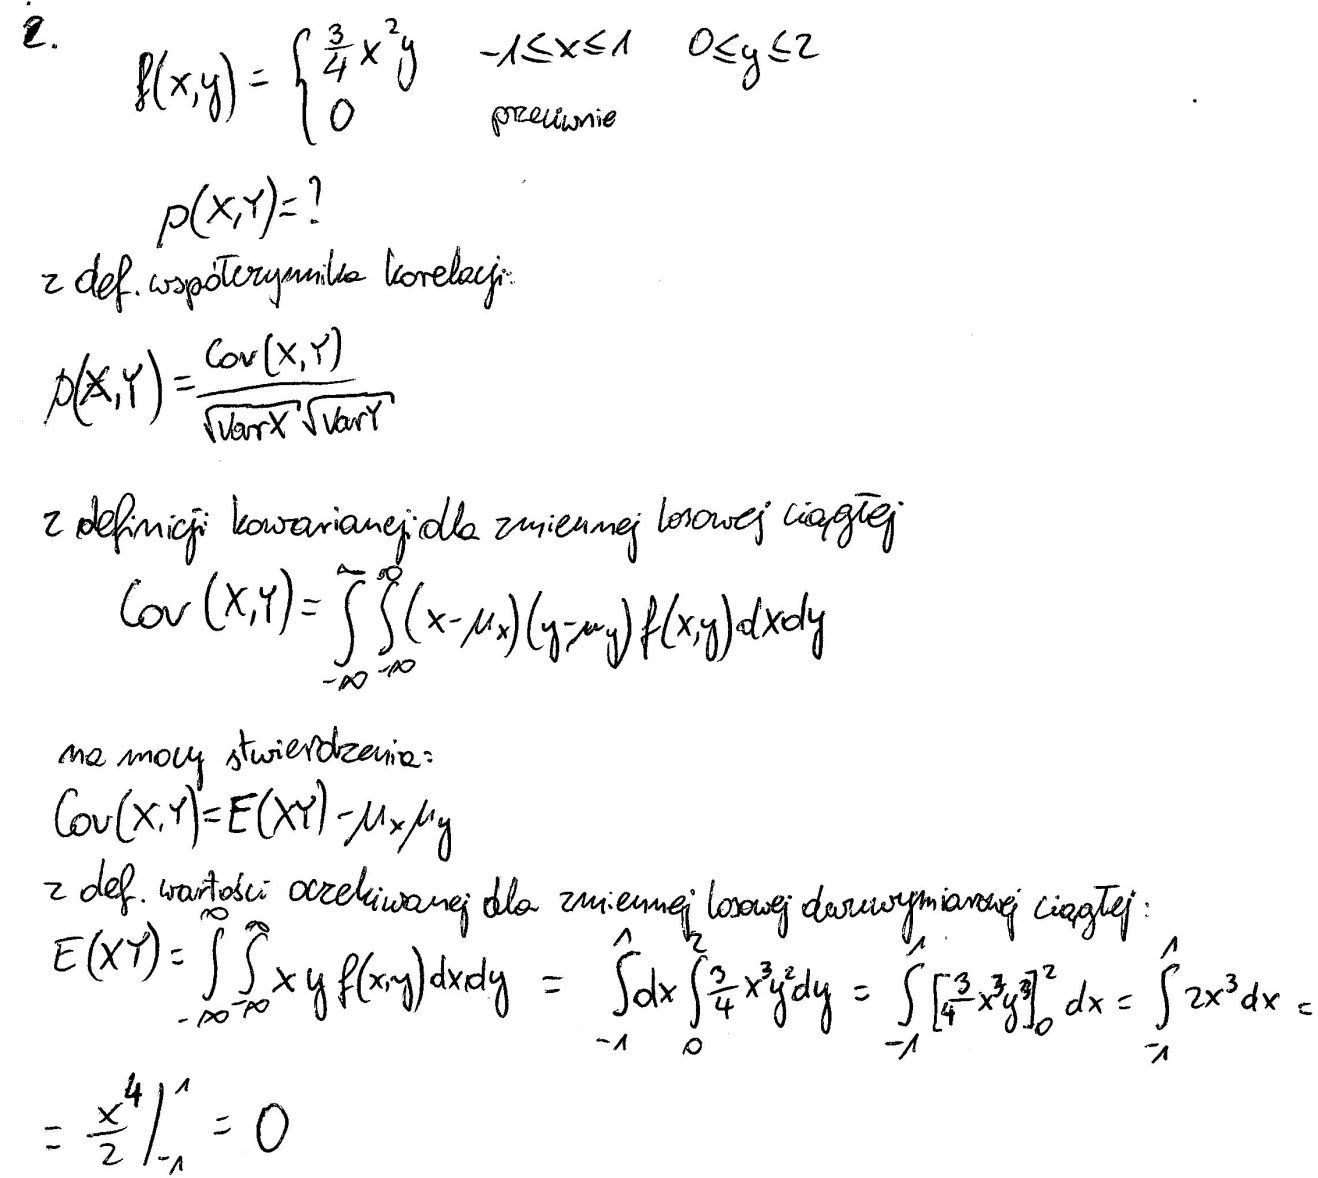 2.
f(x,y) = { 3/4 x²y   -1≤x≤1   0≤y≤2
0   przeciwnie
ρ(X,Y)=?
z def. współczynnika korelacji:
ρ(X,Y) = Cov(X,Y) / √VarX √VarY
z definicji kowariancji dla zmiennej losowej ciągłej
Cov(X,Y) = ∫_{-∞}^{∞} ∫_{-∞}^{∞} (x-μx)(y-μy) f(x,y) dxdy
na mocy stwierdzenia:
Cov(X,Y)=E(XY)-μxμy
z def. wartości oczekiwanej dla zmiennej losowej dwuwymiarowej ciągłej:
E(XY) = ∫_{-∞}^{∞} ∫_{-∞}^{∞} x y f(x,y) dxdy = ∫_{-1}^{1} dx ∫_{0}^{2} 3/4 x³y² dy = ∫_{-1}^{1} [ 3/4 x³ ]_{0}^{2} dx = ∫_{-1}^{1} 2x³ dx =
= x⁴/2 |_{-1}^{1} = 0